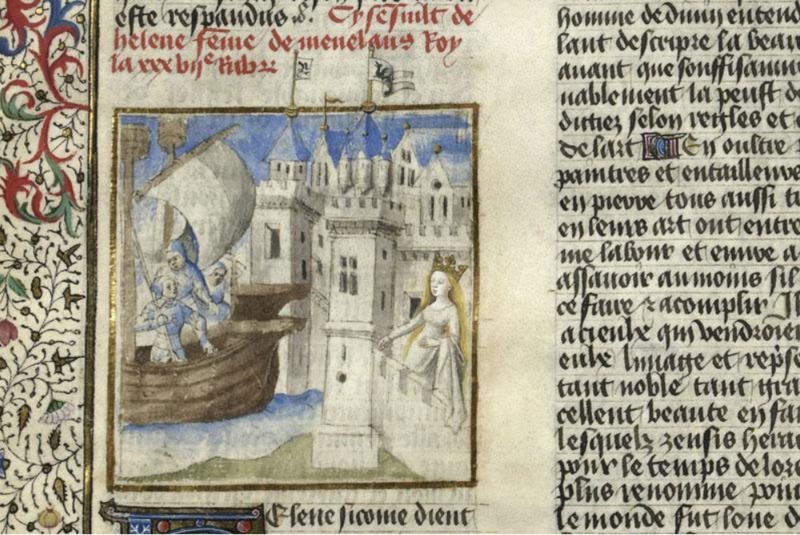 este respandus
Cy sensuit de
helene feme de menelaus Roy
la xxxvije Rubr
Elene sicome dient
homme de duny entend
lant descripre la beau
auant que souffisamm
nablement la peust de
dictiez selon reigles et
de lart En oultre
paintres et entailleurs
en pierre tous aussi
en leurs art ont entre
me labour et enuie a
assauoir au moins sil
ce faire & acomplir Il
a ceulx qui vendroien
eulx limage et repse
tant noble tant gra
cellent beaute en fai
lesquelz zensis herac
pour le temps de lors
plus renomme pour
le monde fut loue d